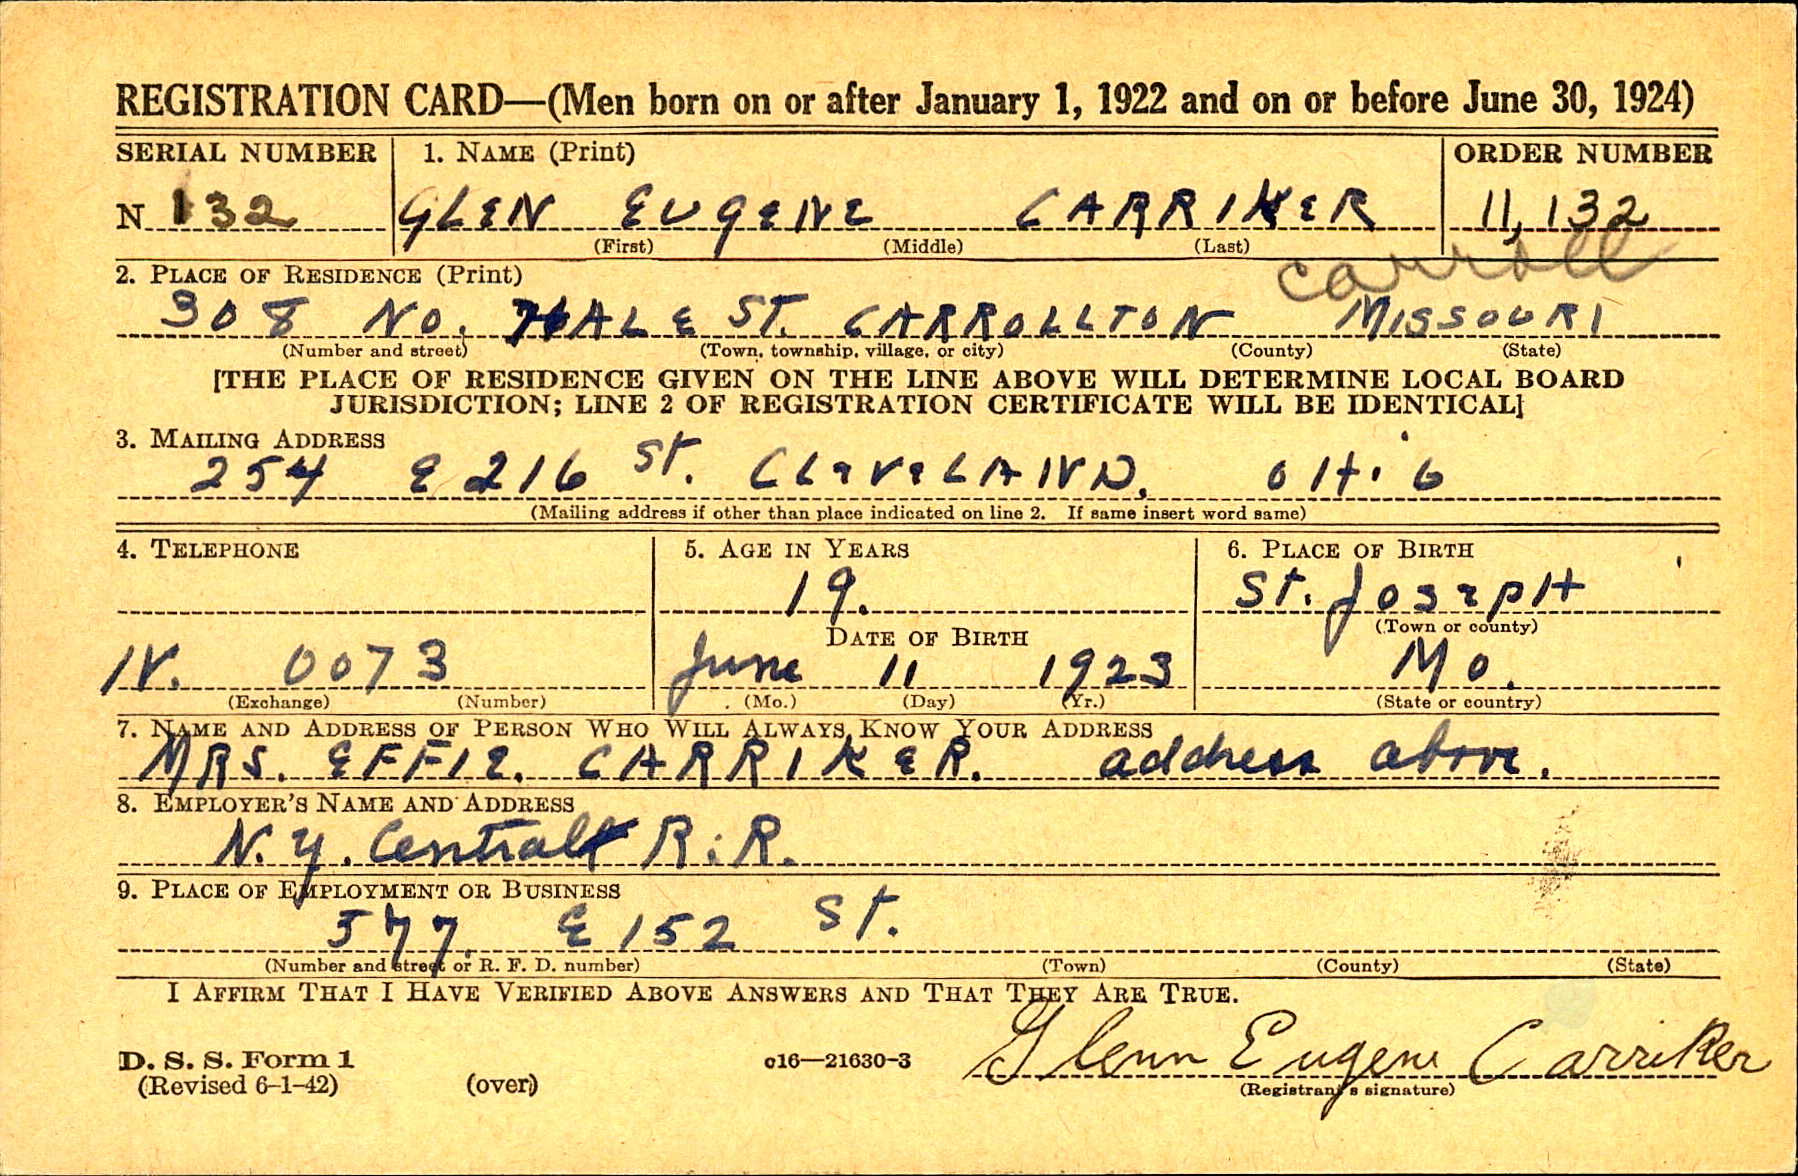 REGISTRATION CARD—(Men born on or after January 1, 1922 and on or before June 30, 1924)
SERIAL NUMBER 1. NAME (Print) ORDER NUMBER
N 132 GLEN EUGENE CARRIKER 11,132
(First) (Middle) (Last)
2. PLACE OF RESIDENCE (Print) Carroll
308 No. HALE ST. CARROLLTON MISSOURI
(Number and street) (Town, township, village, or city) (County) (State)
[THE PLACE OF RESIDENCE GIVEN ON THE LINE ABOVE WILL DETERMINE LOCAL BOARD
JURISDICTION; LINE 2 OF REGISTRATION CERTIFICATE WILL BE IDENTICAL]
3. MAILING ADDRESS
254 E 216 St. CLEVELAND. OHio
(Mailing address if other than place indicated on line 2. If same insert word same)
4. TELEPHONE 5. AGE IN YEARS 6. PLACE OF BIRTH
19. St. JOSEPH
DATE OF BIRTH (Town or county)
IV. 0073 June 11 1923 Mo.
(Exchange) (Number) (Mo.) (Day) (Yr.) (State or country)
7. NAME AND ADDRESS OF PERSON WHO WILL ALWAYS KNOW YOUR ADDRESS
MRS. EFFIE. CARRIKER. address above.
8. EMPLOYER'S NAME AND ADDRESS
N.Y. Central R.R.
9. PLACE OF EMPLOYMENT OR BUSINESS
577. E 152 St.
(Number and street or R. F. D. number) (Town) (County) (State)
I AFFIRM THAT I HAVE VERIFIED ABOVE ANSWERS AND THAT THEY ARE TRUE.
D. S. S. Form 1 c16—21630-3 Glenn Eugene Carriker
(Revised 6-1-42) (over) (Registrant's signature)